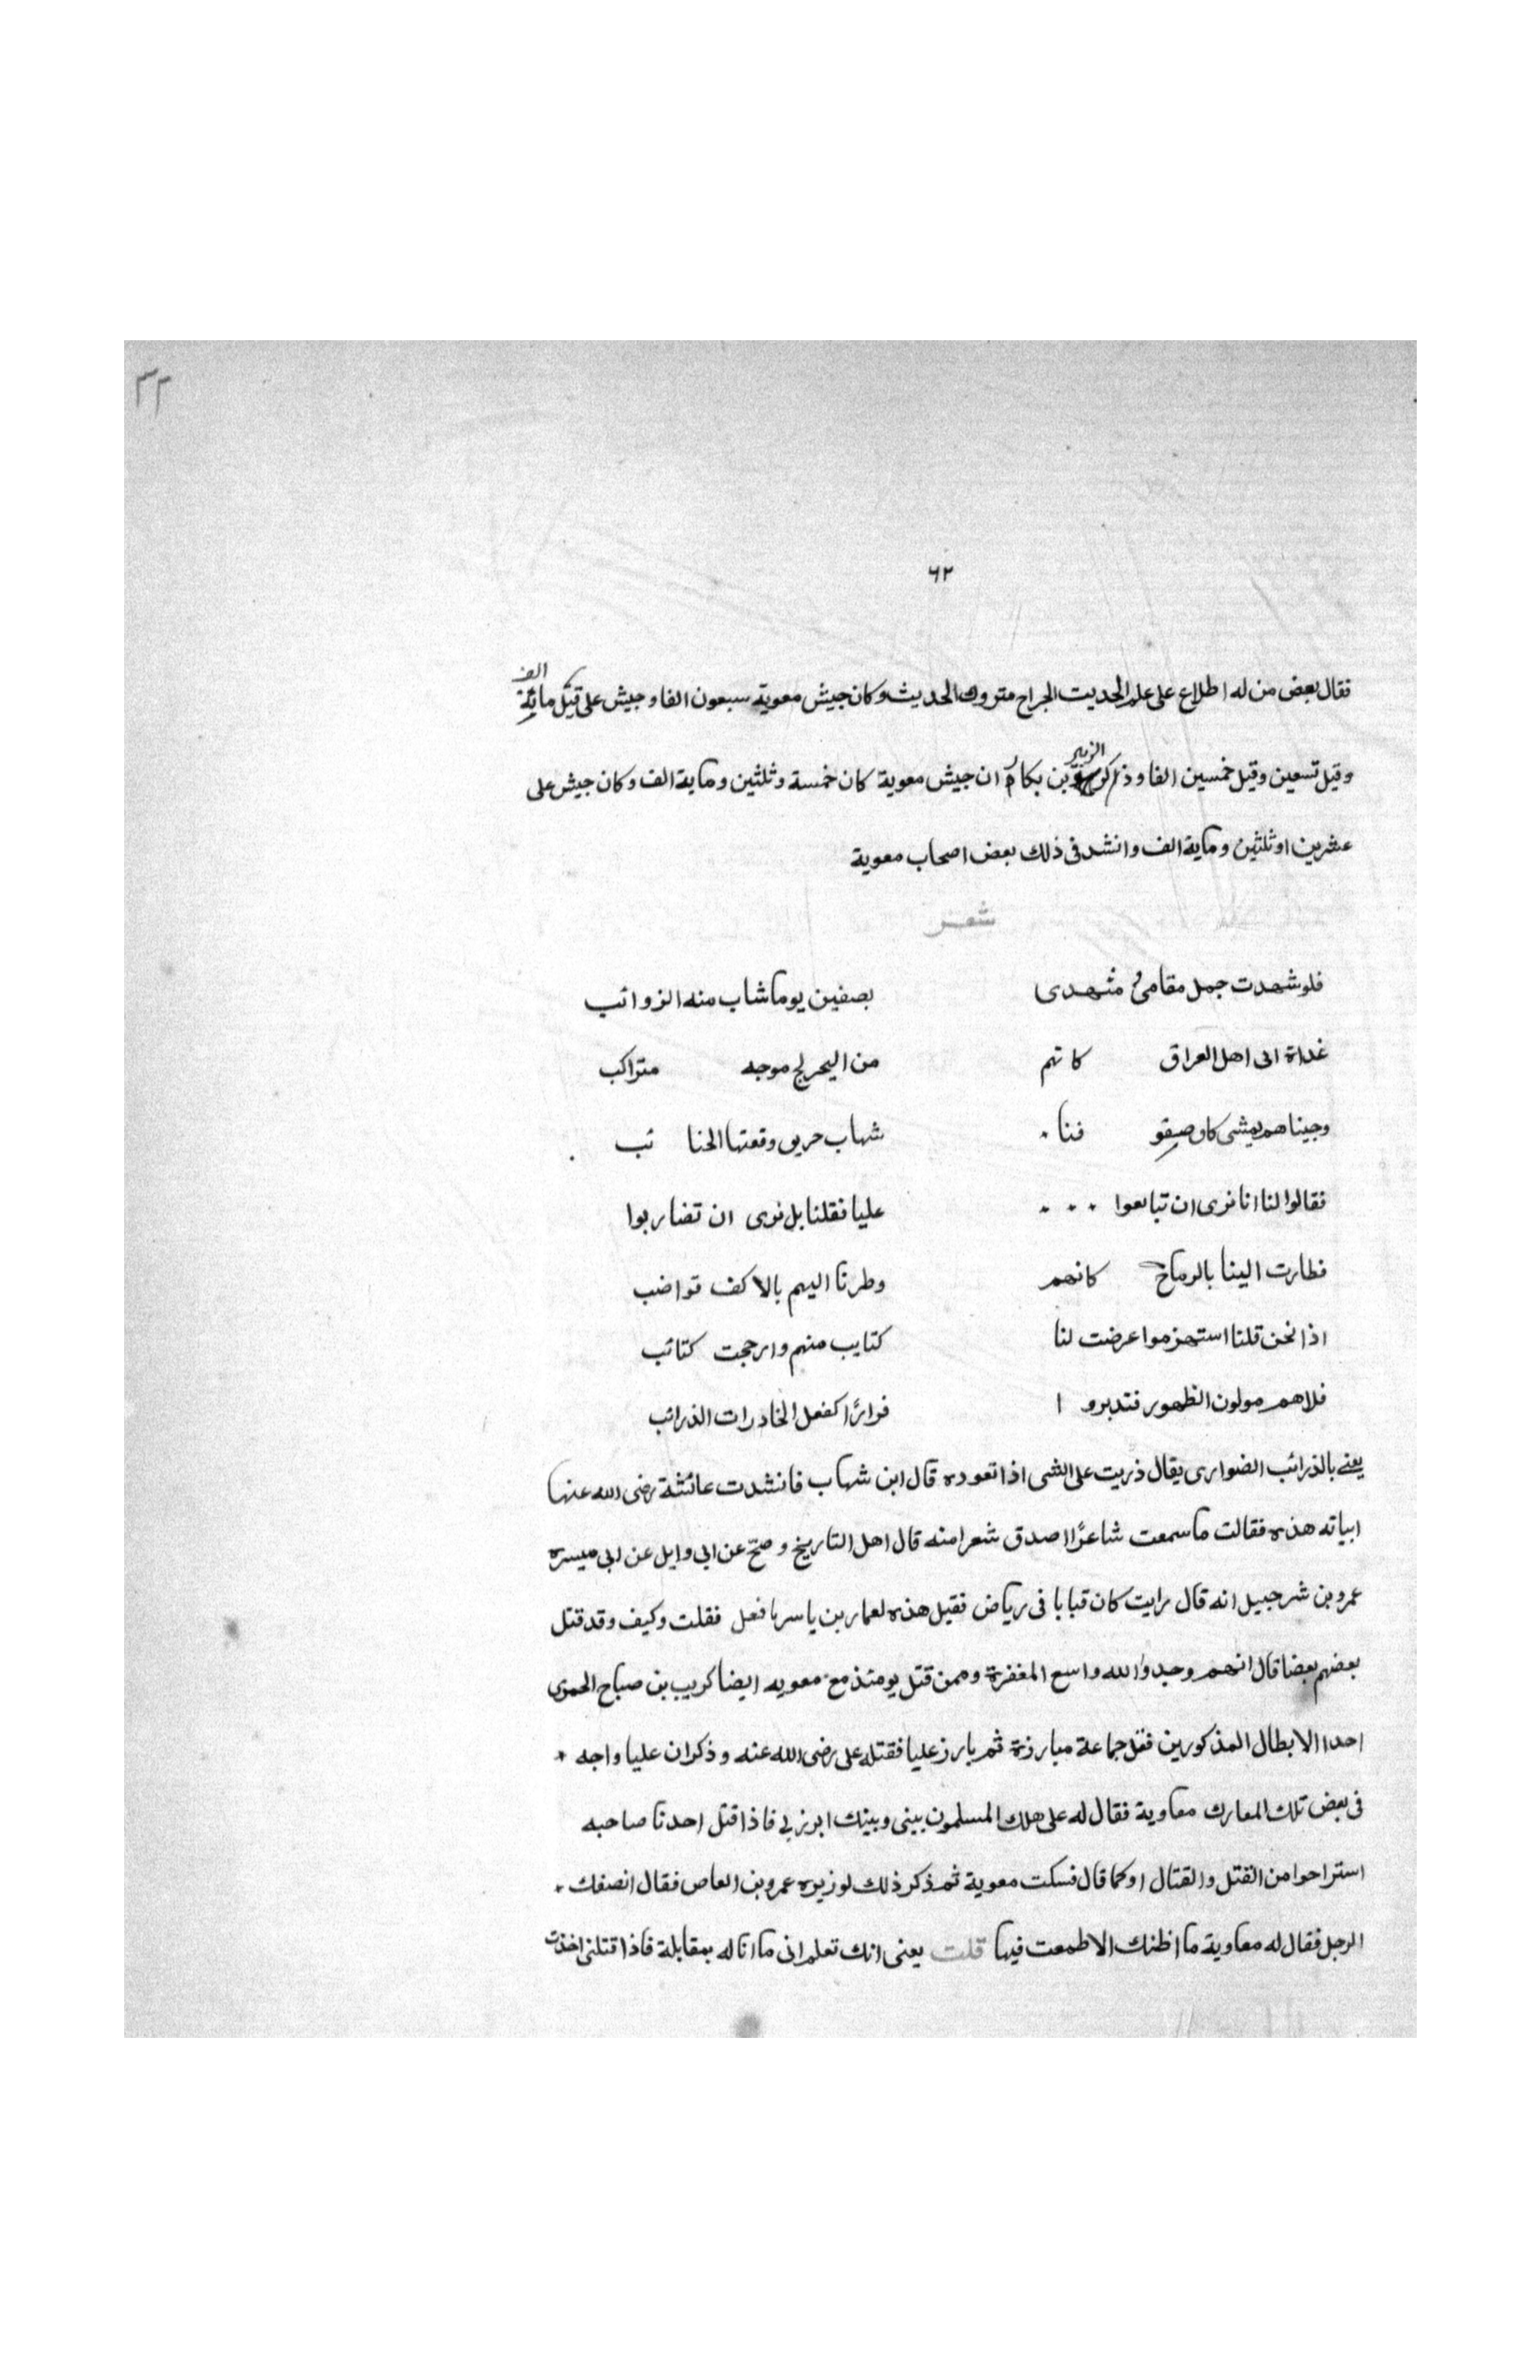 ٣٢
٦٢
فقال بعض من له اطلاع على علم الحديث الجراح متروك الحديث وكان جيش معوية سبعون الفا وجيش على قيل مائة الف
وقيل تسعين وقيل خمسين الفا وذكر الزبير بن بكار ان جيش معوية كان خمسة وثلثين وماية الف وكان جيش على
عشرين او ثلثين وماية الف وانشد فى ذلك بعض اصحاب معوية
شعر
فلو شهدت جمل مقامى و مشهدى بصفين يوما شاب منه الزوائب
غداة اتى اهل العراق كانهم من البحر لج موجه متراكب
وجيناهم بمشى كان صفوفنا شهاب حريق وقعتها الجنا ئب
فقالوا لنا انا نرى ان تبايعوا عليا فقلنا بل نرى ان تضاربوا
فطارت الينا بالرماح كانهم وطرنا اليهم بالاكف قواضب
اذا نحن قلنا استهزموا عرضت لنا كتايب منهم وارجحت كتائب
فلاهم مولون الظهور فتدبرو ا فرارًا كفعل الخادرات الذرائب
يعنى بالذرائب الضوارى يقال ذربت على الشى اذا تعوده قال ابن شهاب فانشدت عائشة رضى الله عنها
ابياته هذه فقالت ما سمعت شاعرًا اصدق شعرا منه قال اهل التاريخ وصحّ عن ابى وايل عن ابى ميسره
عمرو بن شرحبيل انه قال رايت كان قبابا فى رياض فقيل هذه لعمار بن ياسر فقلت وكيف وقد قتل
بعضهم بعضا قال انهم وجدوا الله واسع المغفرة وممن قتل يومئذ مع معويه ايضا كريب بن صباح الحمرى
احد الابطال المذكورين قتل جماعة مبارزة ثم بارز عليا فقتله على رضى الله عنه وذكر ان عليا واجه
فى بعض تلك المعارك معاوية فقال له على هلك المسلمون بينى وبينك ابرز لى فاذا قتل احدنا صاحبه
استراحوا من القتل والقتال او كما قال فسكت معوية ثم ذكر ذلك لوزيره عمرو بن العاص فقال انصفك
الرجل فقال له معاوية ما اظنك الا طمعت فيها قلت يعنى انك تعلم انى ما انا له بمقابلة فاذا قتلنى اخذت